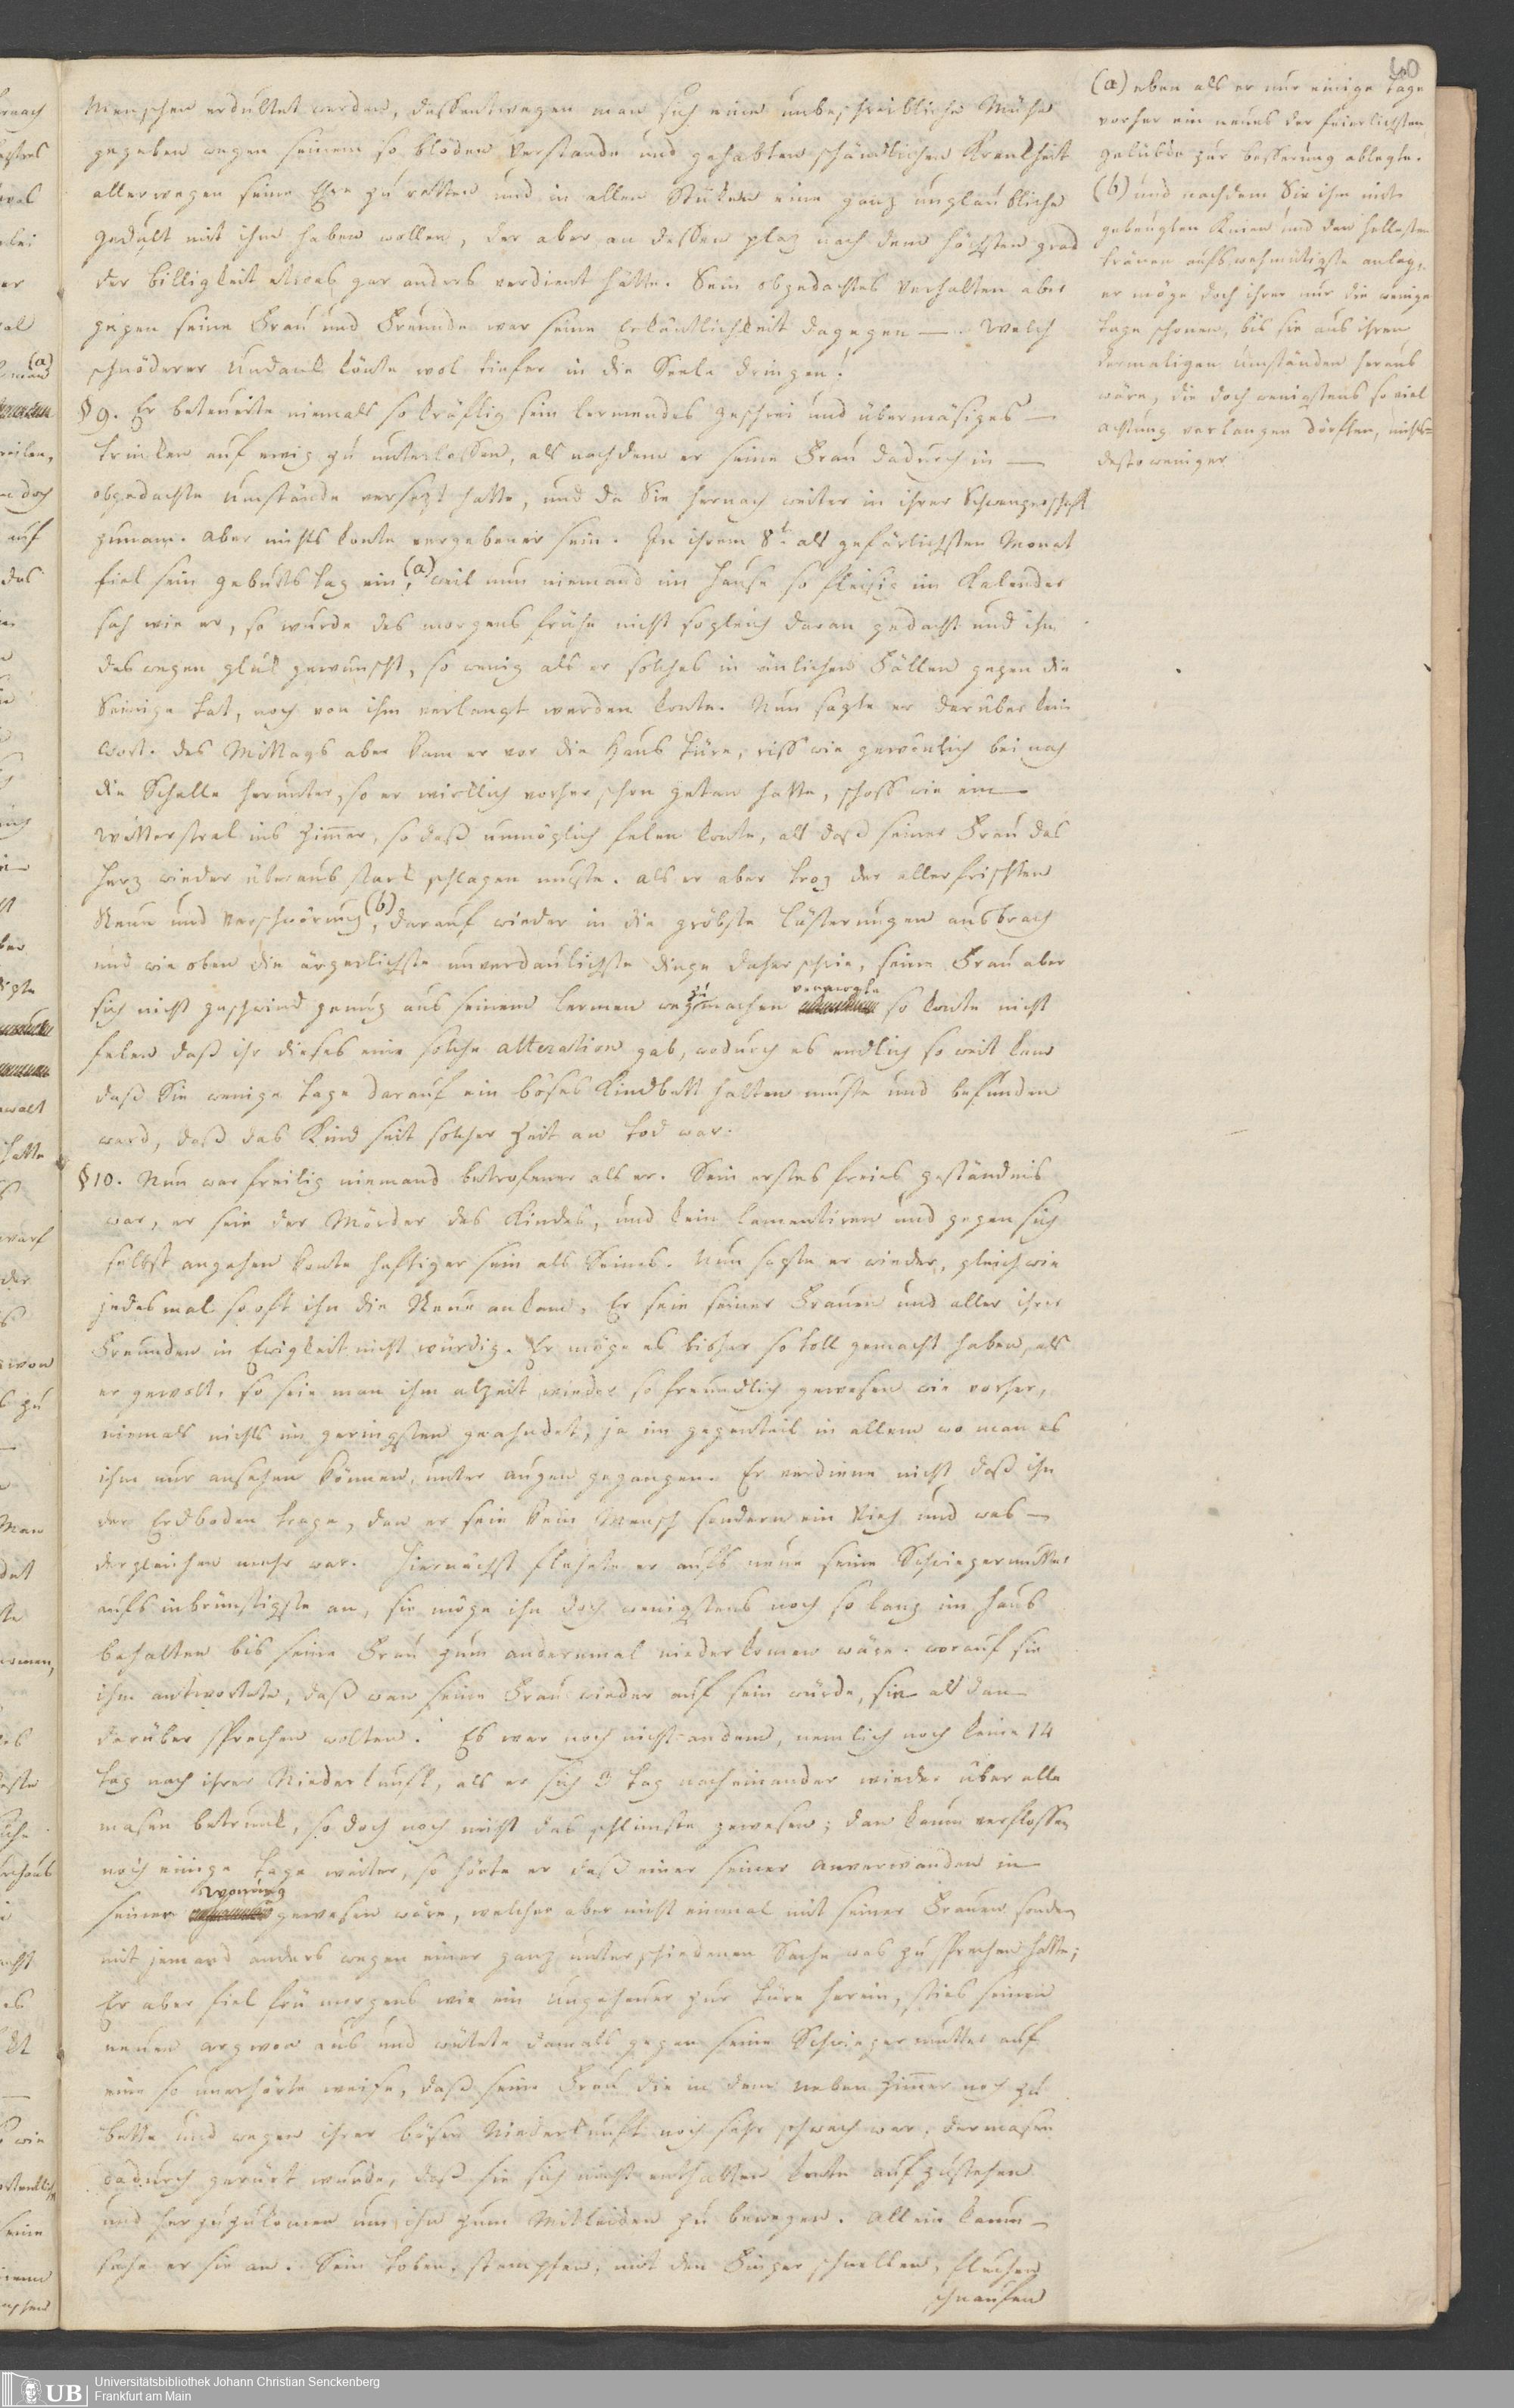 Menschen erdultet werden, dessentwegen man sich eine unbeschreibliche Mühe
gegeben wegen seinem so blöden Verstande und gehabten schändlichen Krankheit
allerwegen seine Ehre zu retten und in allen Stüken eine ganz unglaubliche
Gedult mit ihm haben wollen, der aber an dessen plaz nach dem höchsten grad
der billigkeit etwas gar anders verdient hätte. Sein obgedachtes Verhalten aber
gegen seine Frau und Freunde war seine Erkäntlichkeit dagegen —. Welch
schnöderer Undank könte wol tiefer in die Seele dringen!
§ 9. Er beteuerte niemals so kräftig sein lermendes geschrei und übermäsiges —
trinken auf ewig zu unterlassen, als nachdem er seine Frau dadurch in —
obgedachte umstände versezt hatte, und da Sie hernach weiter in ihrer Schwangerschaft
zunam. Aber nichts konte vergebener sein. In ihrem 8t. als gefärlichsten Monat
fiel sein geburts tag ein, (a) weil nun niemand im Hause so fleisig im Kalender
sah wie er, so wurde des morgens frühe nicht sogleich daran gedacht und ihm
deswegen glük gewünscht, so wenig als er solches in änlichen Fällen gegen die
Seinige tat, noch von ihm verlangt werden konte. Nun sagte er darüber kein
Wort. des Mittags aber kam er vor die Haus türe, riss wie gewönlich bei nah
die Schelle herunter, so er wirklich vorher schon getan hatte, schoss wie ein —
Wetterstral ins Zimer, so daß unmöglich felen konte, als daß seiner Frau das
Herz wieder überaus stark schlagen muste. als er aber troz der allerfrischten
Reue und Verschwörung, (b) darauf wieder in die gröbste lästerungen ausbrach
und wie oben die ärgerlichste unverdaulichste dinge daher schrie, seine Frau aber
sich nicht geschwind genug aus seinem lermen weg zu machen vermogte so konte nicht
felen daß ihr dieses eine solche alteration gab, wodurch es endlich so weit kam
daß Sie wenige tage darauf ein böses Kindbett halten muste und befunden
ward, daß das Kind seit solcher Zeit an tod war.
§ 10. Nun war freilig niemand betrofener als er. Sein erstes freies geständnis
war, er sein der Mörder des Kindes, und kein lamentiren und gegen sich
selbst angehen konte heftiger sein als Seines. Nun sagte er wieder, gleichwie
jedesmal so oft ihn die Reue ankam, Er sein seiner Frauen und aller ihrer
Freunden in Ewigkeit nicht würdig. Er möge es bisher so toll gemacht haben, als
er gewolt, so sein man ihm alzeit wieder so freundlich gewesen wie vorher,
niemals nichts im geringsten geahndet, ja im gegenteil in allem wo man es
ihm nur ansehen können, unter augen gegangen. Er verdiene nicht daß ihn
der Erdboden trage, dan er sein kein Mensch sondern ein Vieh und was —
dergleichen mehr war. Hiernächst flehete er aufs neue seine Schwiegermutter
aufs inbrünstigste an, sie möge ihn doch wenigstens noch so lang im Haus
behalten bis seine Frau zum anderenmal niederkomen wäre. worauf sie
ihm antwortete, daß wan seine Frau wieder auf sein würde, sie als dan
darüber sprechen wolten. Es war noch nicht an dem, nemlich noch keine 14
tag nach ihrer Niederkunft, als er sich 3 tag nacheinander wieder über alle
masen betrunk, so doch noch nicht das schlimste gewesen; dan kaum verflossen
noch einige tage weiter, so hörte er daß einer seiner Anverwanden in
seiner Wonung gewesen wäre, welcher aber nicht einmal mit seiner Frauen sondern
mit jemand anders wegen einer ganz unterschiedenen Sache was zu sprechen hatte;
Er aber fiel frü morgens wie ein Ungeheuer zur türe herein, sties seinen
neuen argwon aus und wütete damals gegen seine Schwiegermutter auf
eine so unerhörte weise, daß seine Frau die in dem neben Zimer noch zu
bette und wegen ihrer bösen Niederkunft noch sehr schwach war, dermasen
dadurch gerürt wurde, daß sie sich nicht enthalten konte aufzustehen
und herzuzukomen um ihn zum Mitleiden zu bewegen. Allein kaum —
sahe er sie an. Sein toben, stampfen, mit den Finger schnellen, fluchen
schnaufen
60
(a) eben als er nur einige tage
vorher ein neues der feierlichsten
gelübde zur besserung ablegte.
(b) und nachdem Sie ihn mit
gebeugten Knien und den hellesten
tränen aufs wehmütigste anlag,
er möge doch ihrer nur die wenige
tage schonen, bis sie aus ihren
dermaligen umständen heraus
wäre, die doch wenigstens so viel
achtung verlangen dörften, nichts=
destoweniger
UB
Universitätsbibliothek Johann Christian Senckenberg
Frankfurt am Main